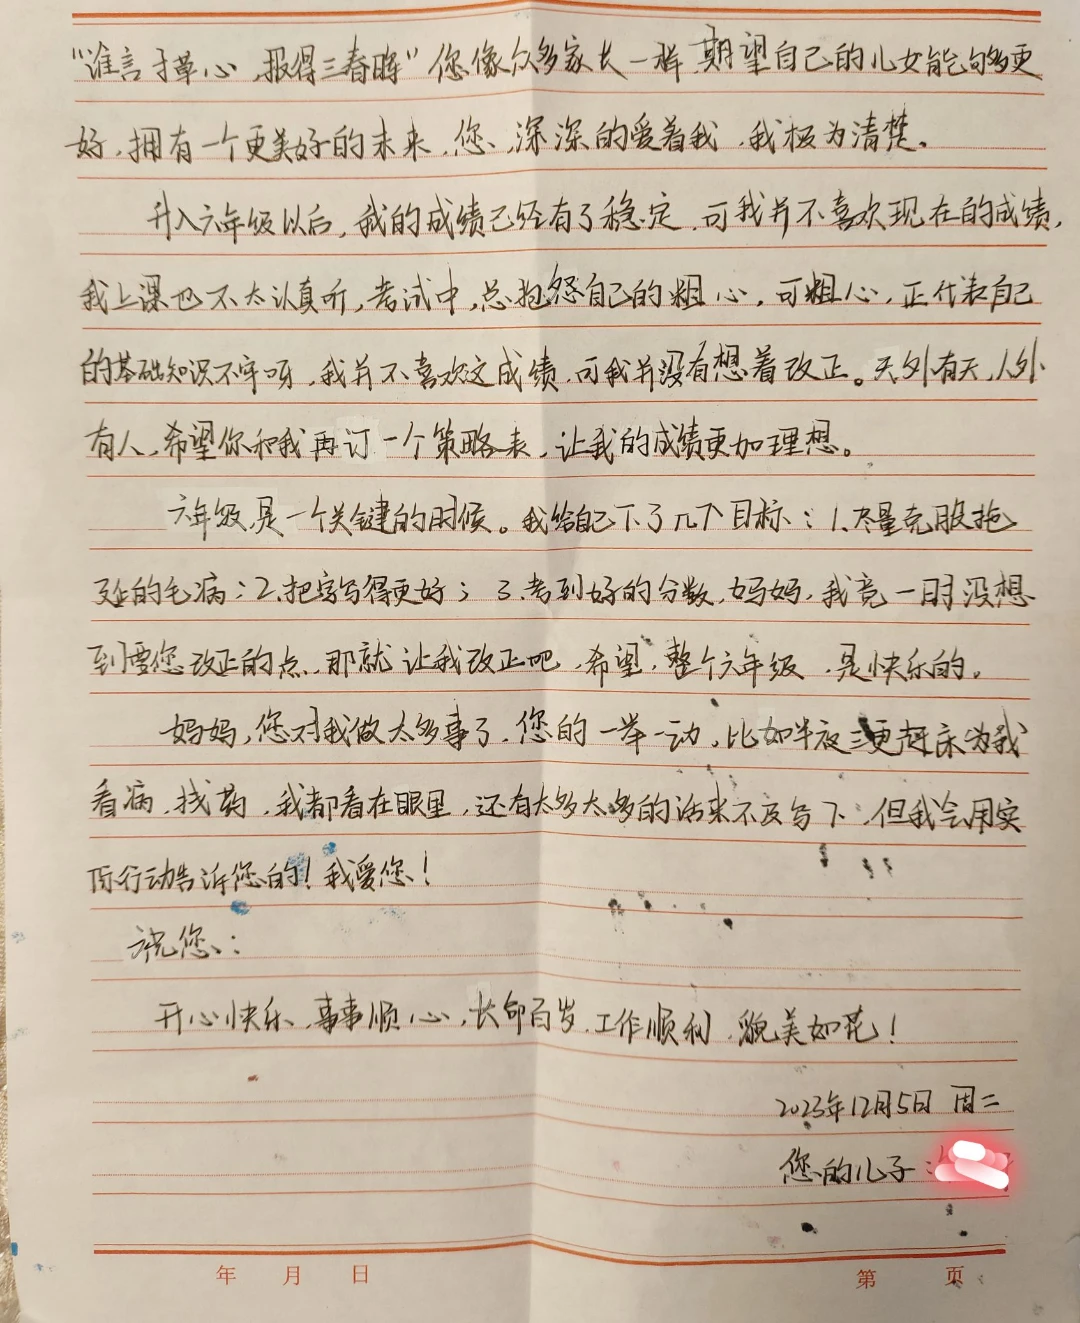 “谁言寸草心，报得三春晖”您像众多家长一样，期望自己的儿女能够更
好，拥有一个更美好的未来，您，深深的爱着我，我极为清楚。
升入六年级以后，我的成绩已经有了稳定，可我并不喜欢现在的成绩，
我上课也不太认真听，考试中，总抱怨自己的粗心，可粗心，正代表自己
的基础知识不牢呀，我并不喜欢这成绩，可我并没有想着改正。天外有天，人外
有人，希望你和我再订一个策略表，让我的成绩更加理想。
六年级，是一个关键的时候。我给自己下了几个目标：1、尽量克服拖
延的毛病；2、把字写得更好；3、考到好的分数，妈妈，我竟一时没想
到要您改正的点，那就让我改正吧，希望，整个六年级，是快乐的。
妈妈，您对我做太多事了，您的一举一动，比如半夜三更起床为我
看病，找药，我都看在眼里，还有太多太多的话来不及写下，但我会用实
际行动告诉您的！我爱您！
祝您：
开心快乐，事事顺心，长命百岁，工作顺利，貌美如花！
2023年12月5日 周二
您的儿子：
年 月 日
第 页